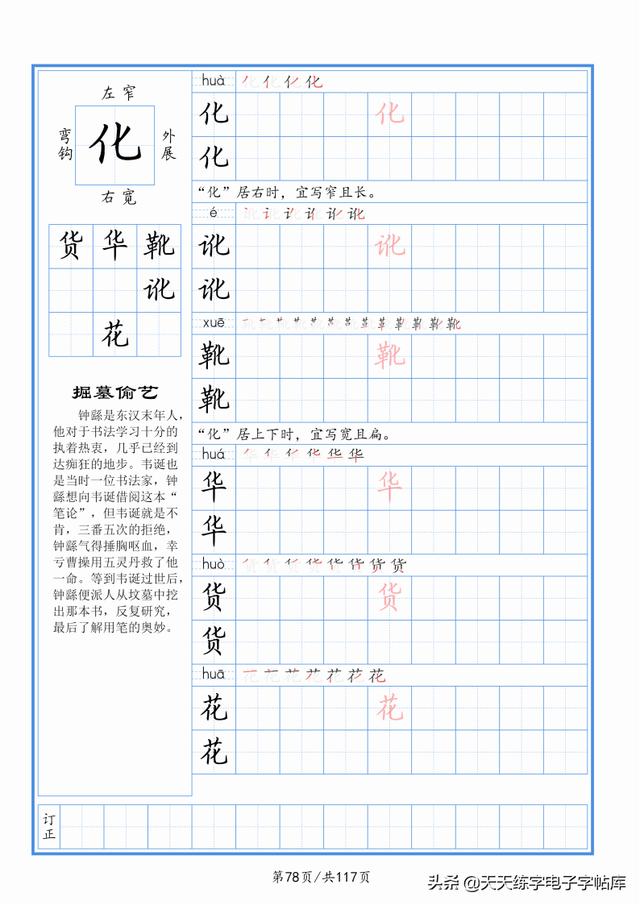 左窄
弯钩
化
外展
右宽
货 华 靴
讹
花
掘墓偷艺
钟繇是东汉末年人，
他对于书法学习十分的
执着热衷，几乎已经到
达痴狂的地步。韦诞也
是当时一位书法家，钟
繇想向韦诞借阅这本“
笔论”，但韦诞就是不
肯，三番五次的拒绝，
钟繇气得捶胸呕血，幸
亏曹操用五灵丹救了他
一命。等到韦诞过世后，
钟繇便派人从坟墓中挖
出那本书，反复研究，
最后了解用笔的奥妙。
huà
化 化
化
“化”居右时，宜写窄且长。
é
讹 讹
讹
xuē
靴 靴
靴
“化”居上下时，宜写宽且扁。
huá
华 华
华
huò
货 货
货
huā
花 花
花
订正
第78页/共117页
头条 @天天练字电子字帖库